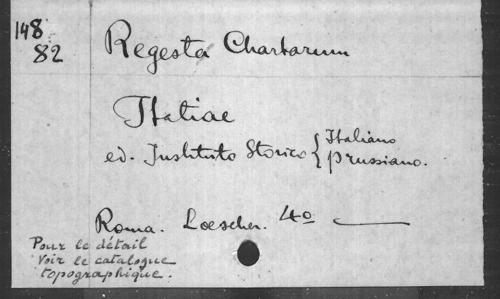 148
82
Regesta Chartarum
Italiae
ed. Istituto Storico { Italiano
Prussiano.
Roma. Loescher. 4o
Pour le détail
Voir le catalogue
topographique.